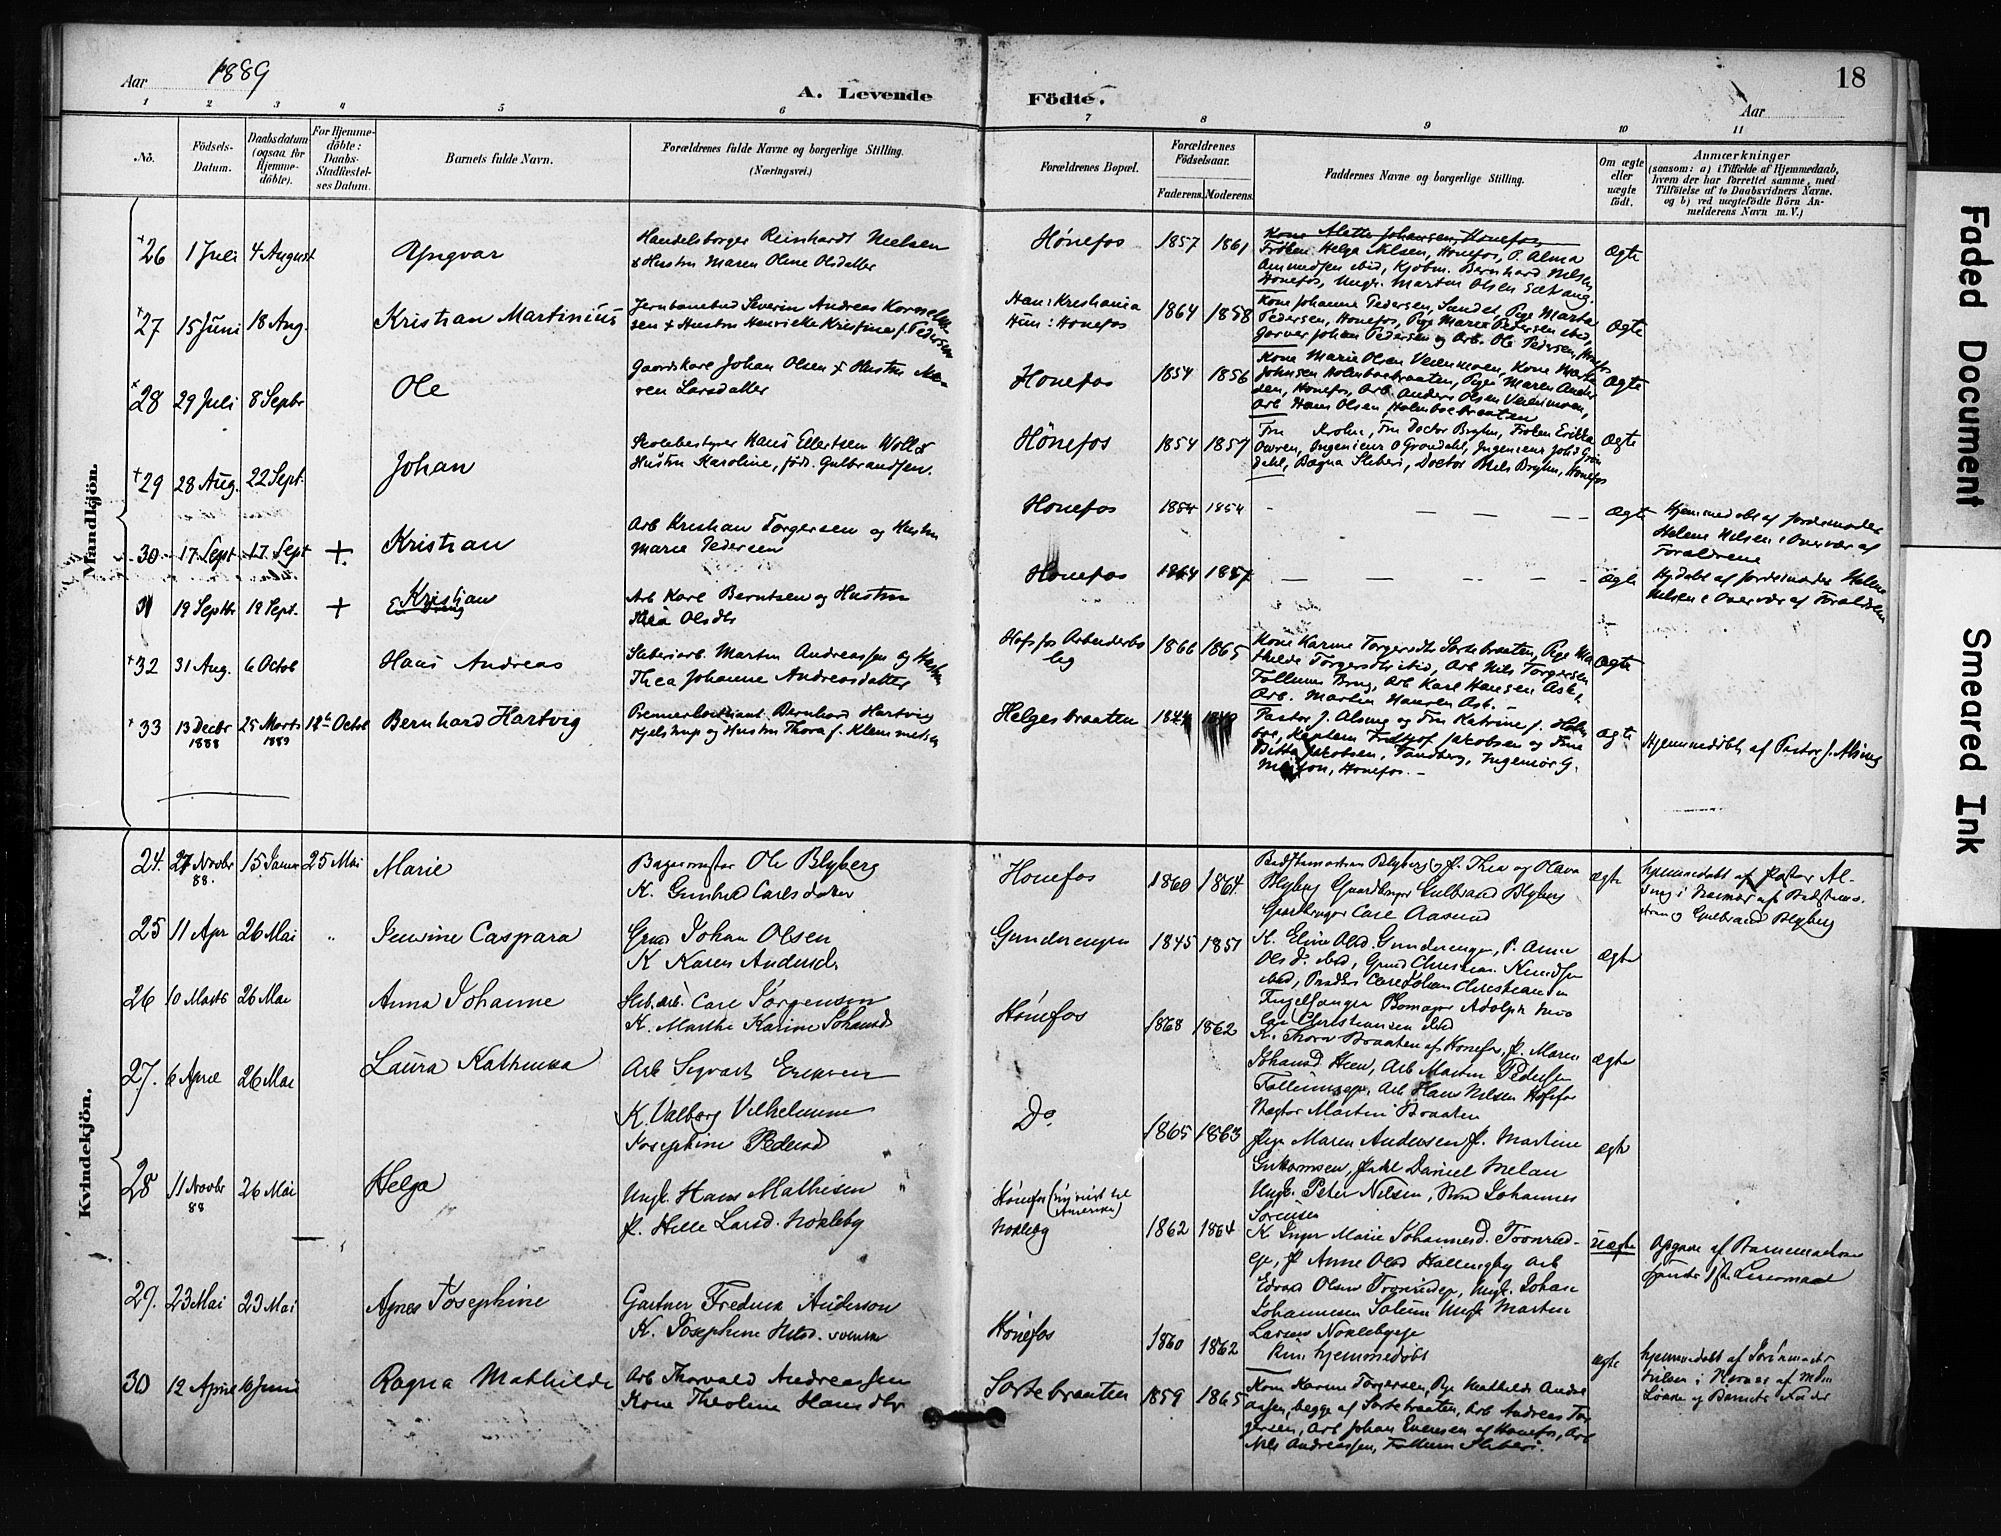 Aar 1889
A. Levende
Födte.
Aar
18
1 2 3 4 5 6 7 8 9 10 11
No.
Födsels-Datum.
Daabsdatum (ogsaa for Hjemme-döbte).
For Hjemme-döbte: Daabs-Stadfæstel-ses Datum.
Barnets fulde Navn.
Forældrenes fulde Navne og borgerlige Stilling.
(Næringsvei.)
Forældrenes Bopæl.
Forældrenes Födselsaar.
Faderens.
Moderens.
Faddernes Navne og borgerlige Stilling.
Om ægte eller uægte födt.
Anmærkninger
(saasom: a) i Tilfælde af Hjemmedaab,
hvem der har forrettet samme, med
Tilföielse af to Daabsvidners Navne.
og b) ved uægtefödte Börn An-
melderens Navn m. V.)
Mandkjön.
26 1 Juli 4 August Yngvar
Handelsborger Reinhardt Nielsen
& Hustru Maren Oline Olsdatter
Hönefos 1857 1861
Kone Alette Johansen, Honefos,
Fröken Helga Nilsen, Honefos, P. Alma
Amundsen ibid, Kjöbm. Bernhard Nilsen
Honefos, Ungk. Martin Olsen
Ægte
27 15 Juni 18 Aug. Kristian Martinius
Jernbanebud Severin Andreas Korneliu-
sen & Hustru Henrikke Kristine f. Pedersen
Han: Kristiania
Hun: Honefos
1864 1858
Kone Johanne Pedersen, Sundet, Pige Marta
Pedersen, Honefos, Pige Marie Pedersen ibid,
Garver Johan Pedersen og Arb. Ole Pedersen,
Ægte
28 29 Juli 8 Septbr Ole
Gaardskarl Johan Olsen & Hustru Ma-
ren Larsdatter
Honefos 1854 1856
Kone Marie Olsen Veienmoen, Kone Marta
Johnsen Holmboebraaten, Pige Maren Ander
sen, Honefos, Arb. Anders Olsen Veienmoen,
Arb Hans Olsen, Holmboebraaten
Ægte
29 28 Aug. 22 Sept. Johan
Skolebestyrer Hans Ellertsen Woll &
Hustru Karoline, föd. Gulbrandsen.
Hönefos 1854 1857
Fru Krohn, Fru Doctor Bryhn, Fröken Erikka
Owren, Ingeniеur O Gröndahl, Ingenieur Joh's Grön
dahl, Bægna Sliberi, Doctor Nils Bryhn, Honefos
Ægte
30 17 Sept 17 Sept + Kristian
Arb Kristian Torgersen og Hustru
Marie Pedersen
Honefos 1854 1854
Ægte
Hjemmedöbt af Jordemoder
Helene Nilsen i Overvær af
Forældrene
31 19 Septbr 19 Sept. + Kristian
Arb Karl Berntsen og Hustru
Thea Olsdtr
Honefos 1864 1857
Ægte
Hjdöbt af Jordemoder Helene
Nilsen i Overvær af Forældrene
32 31 Aug. 6 Octob Hans Andreas
Sliberiarb. Martin Andreassen og Hustru
Thea Johanne Andreasdatter
Hofsfos Arbeiderbo
lig
1866 1865
Kone Karine Torgersdtr Sortebraaten, Pige Ma
thilde Torgersdtr ibid, Arb Nils Torgersen
Follums Brug, Arb Karl Hansen Ask,
Arb. Martin Hansen Ask.
Ægte
33 13 Decbr 1888 25 Marts 1889 12te Octob Bernhard Hartvig
Premierlieutnant Bernhard Hartvig
Gjelstrup og Hustru Thora f. Klemmetsen
Helgesbraaten 1844
Pastor J. Alsing og Fru Katrine f. Holm
boe, Kaptein Fridthjof Jakobsen og Frue
Ditta Jakobsen, Tandberg, Ingeniör G.
Honefos. -
Ægte
Hjemmedöbt af Pastor J. Alsing
Kvindekjön.
24. 27 Novbr 88. 15 Januar 25 Mai Marie
Bagermester Ole Blyberg
K. Gunhild Carlsdatter
Honefos 1860 1864
Blyberg, P. Thea og Olava
Blyberg Gaardbruger Gulbrand Blyberg
Gaardbruger Carl Aasund
ægte
hjemmedöbt af Pastor Al-
sing i Nærvær af
og Gulbrand Blyberg
25 11 Apr 26 Mai Jenrine Caspara
Johan Olsen
K Karen Andersd.
Gunderengen 1845 1851
K. Eline Olsd. Gunderengen, P. Anne
Olsd. ibid, Christian Knudsen
ibid, Carl Johan Christiansen
ægte
26 10 Marts 26 Mai Anna Johanne
Slib.arb. Carl Jörgensen
K. Marthe Karine Johansd
Hönefos 1868 1862
K. Thora Braaten af Honefos, P. Maren
Johansd Heen, Arb Martin Pedersen
Arb Hans Nielsen Hofsfos
Martin Braaten
ægte
27. 6 April 26 Mai Laura Kathinka
Arb Sigvart Eriksen
K. Valborg Vilhelmine
Josephine Pedersd
Do 1865 1863
Pige Maren Andersen, P. Martine
Guttormsen, Daniel Melan
Ungk. Peter Nilsen, Johannes
Sörensen
ægte
28 11 Novbr 88 26 Mai Helga
Ungk. Hans Mathisen
P. Helle Larsd. Nökleby
Hönefos (ny reist til Amerika)
Nökleby
1862 1864
K Inger Marie Johannesd. Tronrud-
eje, P Anne Olsd Hallingby Arb
Edvard Olsen Tronrudeje, Ungk. Johan
Johannesen Solum Ungk Martin
Larsen Noklebyeje
uægte
Opgave af Barnemoderen
29. 23 Mai 23 Mai Agnes Josephine
Gartner Fredrik Anderson
K. Josephine
Hönefos 1860 1862
hjemmedöbt
ægte
hjemmedöbt af
30 12 April 10 Juni Ragna Mathilde
Arb Thorvald Andreassen
Kone Theoline Hansdtr
Sortebraaten 1859 1865
Kone Karine Torgersen, Pige Mathilde Andre
assen, begge af Sortebraaten, Arb Andreas Tor
gersen, Arb Johan Evensen af Honefos, Arb
Nils Andreassen, Follum Sliberi.
Faded Document
Smeared Ink